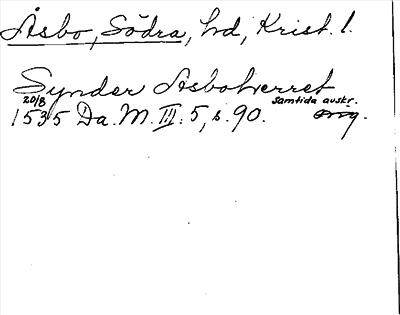 Åsbo, Södra, hd, Krist. l.
Synder Asboherret
20/8 samtida avskr.
1535 Da. M. III: 5, s. 90. orig.